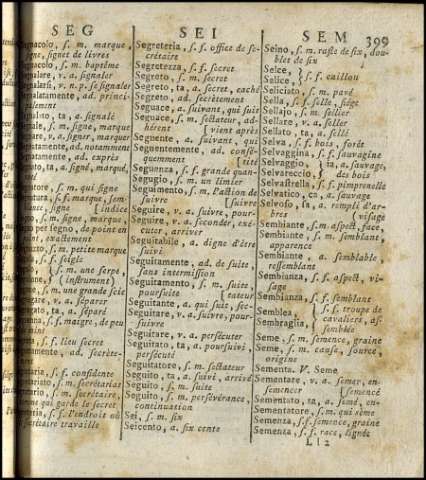 SEG
SEI
SEM
399
s. m. marque
signet de livres
s. m. baptême
v. a. signaler
v. n. p. se signaler
ad. princi-
palement
ta, a. signalé
s. m. signe, marque
v. a. signer, marquer
ad. notamment
ad. exprès
ta, a. signé, marqué
s. m. qui signe
s. f. marque, sem-
signe { indice
s. m. signe, marque,
per segno, de point en
point, exactement
s. m. petite marque
s. f. seigle
s. m. une serpe,
{ instrument }
s. m. une grande scie
v. a. séparer
ta, a. séparé
s. f. maigre, de peu
s. f. lieu secret
ad. secrète-
s. f. confidente
s. m. secrétariat
s. m. secrétaire,
qui garde le secret
s. f. l'endroit où
secrétaire travaille
Segreteria, s. f. office de se-
crétaire
Segretezza, s. f. secret
Segreto, s. m. secret
Segreto, ta, a. secret, caché
Segreto, ad. secrètement
Seguace, a. suivant, qui suit
Seguace, s. m. sectateur, ad-
hérent { vient après
Seguente, a. suivant, qui
Seguentemente, ad. consé-
quemment { tité
Seguenza, s. f. grande quan-
Segugio, s. m. un limier
Seguimento, s. m. l'action de
suivre { suivre
Seguire, v. a. suivre, pour-
Seguire, v. a. seconder, exé-
cuter, arriver
Seguitabile, a. digne d'être
suivi
Seguitamente, ad. de suite,
sans intermission
Seguitamento, s. m. suite,
poursuite { tateur
Seguitante, a. qui suit, sec-
Seguitare, v. a. suivre, pour-
suivre
Seguitare, v. a. persécuter
Seguitato, ta, a. poursuivi,
persécuté
Seguitatore, s. m. sectateur
Seguito, ta, a. suivi, arrivé
Seguito, s. m. suite
Seguito, s. m. persévérance,
continuation
Sei, s. m. six
Seicento, a. six cents
Seino, s. m. rafle de six, dou-
blet de six
Selce, }
Selice, } s. f. caillou
Seliciato, s. m. pavé
Sella, s. f. selle, siége
Sellajo, s. m. sellier
Sellare, v. a. seller
Sellato, ta, a. sellé
Selva, s. f. bois, forêt
Selvaggina, s. f. sauvagine
Selvaggio, } ta, a. sauvage,
Selvareccio, } des bois
Selvastrella, s. f. pimprenelle
Selvatico, ca, a. sauvage
Selvoso, sa, a. rempli d'ar-
bres { visage
Sembiante, s. m. aspect, face,
Sembiante, s. m. semblant,
apparence
Sembiante, a. semblable
ressemblant
Sembianza, s. f. aspect, vi-
sage
Sembianza, s. f. semblant
Semblea, } s. f. troupe de
Sembraglia, } cavaliers, as-
semblée
Seme, s. m. semence, graine
Seme, s. m. cause, source,
origine
Sementa. V. Seme
Sementare, v. a. semer, en-
semencer { semencé
Sementato, ta, a. semé, en-
Sementatore, s. m. qui sème
Semenza, s. f. semence, graine
Semenza, s. f. race, lignée
Ll2